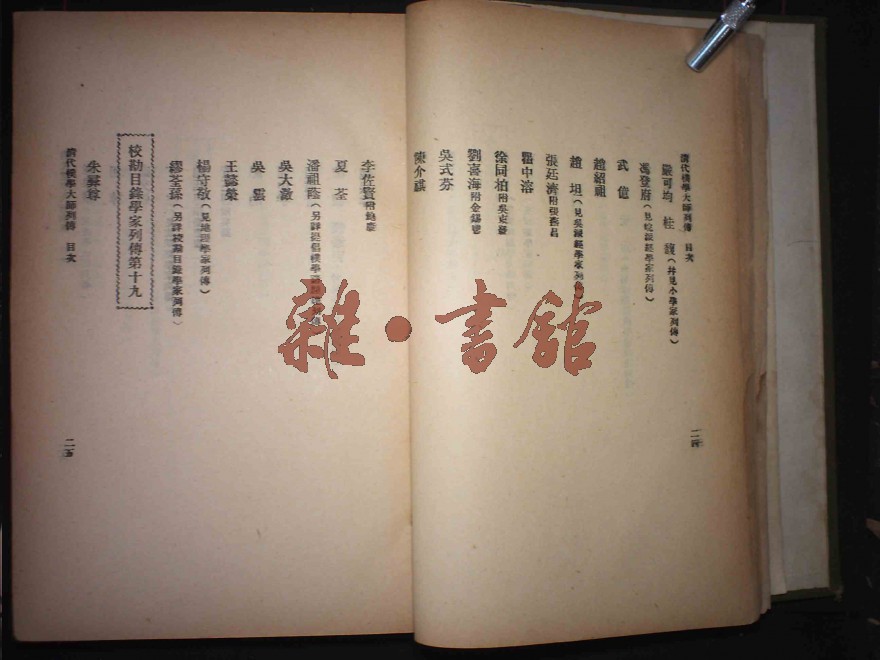 清代樸學大師列傳　目次
嚴可均　桂　馥（幷見小學家列傳）
馮登府（見皖派經學家列傳）
武　億
趙紹祖
趙　坦（見吳派經學家列傳）
張廷濟附張燕昌
瞿中溶
徐同柏附吳東發
劉喜海附金錫鬯
吳式芬
陳介祺
二四
李佐賢附鮑康
夏　荃
潘祖蔭（另詳提倡樸學
吳大澂
吳　雲
王懿榮
楊守敬（見地理學家列傳）
繆荃孫（另詳校勘目錄學家列傳）
校勘目錄學家列傳第十九
朱彝尊
清代樸學大師列傳　目次
二五
雜•書館